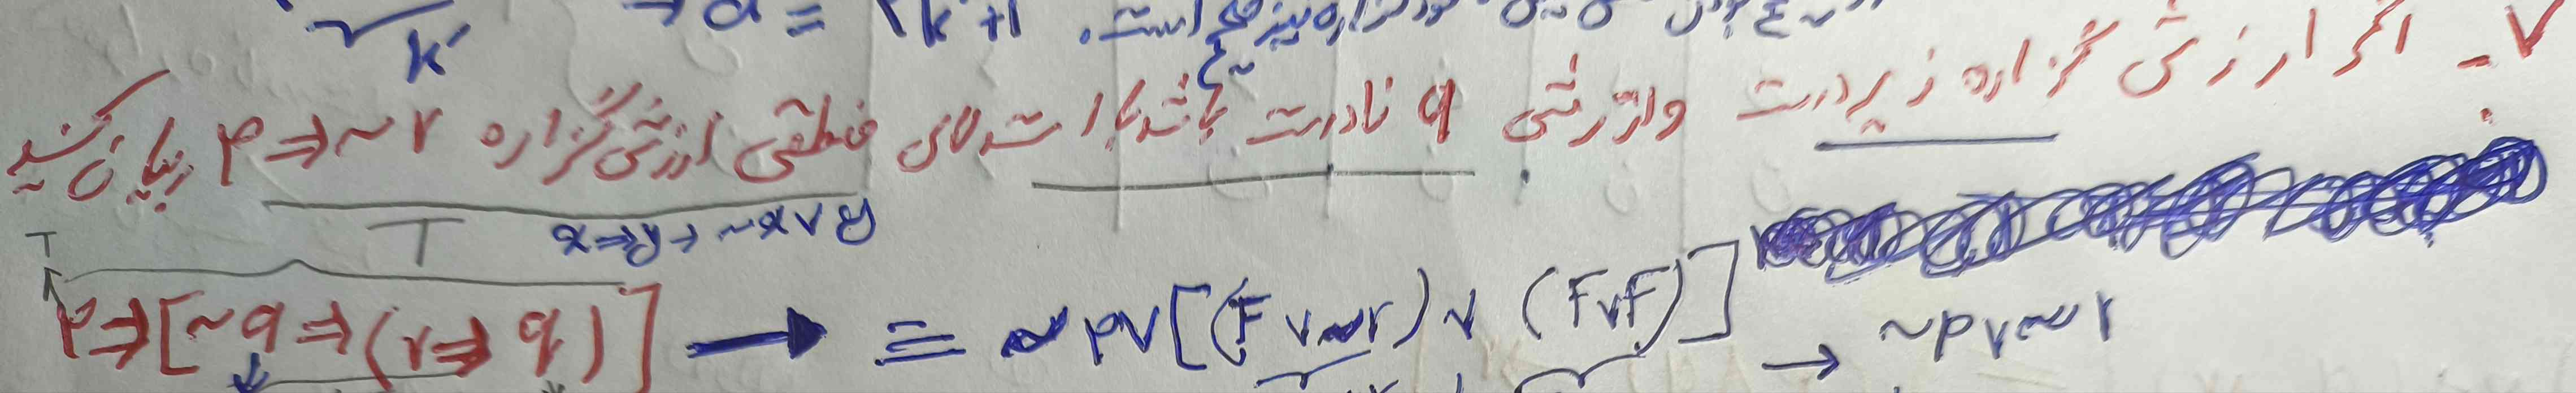 → a = ۲k′ + ۱ است.
k′
۷- اگر ارزش گزاره زیر درست و ارزش q نادرست باشد با استدلال منطقی ارزش گزاره p ⇒ ~r را بیان کنید
T x ⇒ y → ~x ∨ y
T
p ⇒ [~q ⇒ (r ⇒ q)] → ≡ ~p ∨ [(F ∨ ~r) ∨ (F ∨ F)] → ~p ∨ ~r